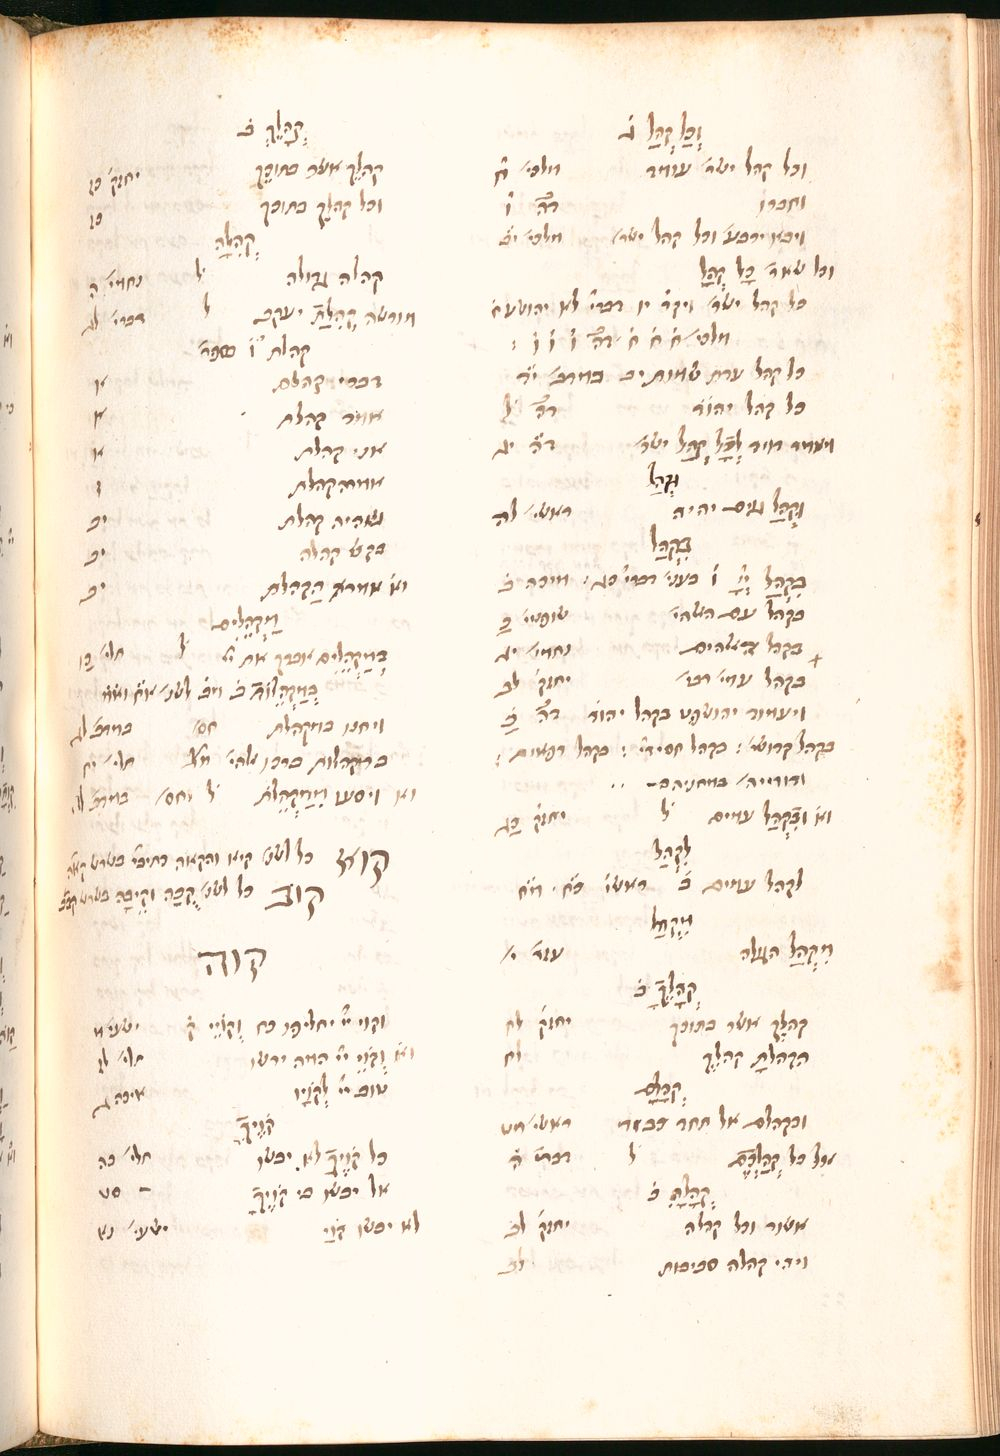 וְכַל קְהַל ו̇
וכל קהל ישר׳ עומד מלכי׳ ח̇
וחברו דה̇ ו̇
ויבא ירבעׄ וכל קהל ישר׳ מלכי׳ יב̇
וכל שאר׳ כָל קְהַל
כל קהל ישר׳ ויקר׳ יו דברי̇
כל קהל עדת שמות יב במדב׳ יד̇
כל קהל יהוד׳ דה̇ ל̇
לְכָל קְהַל ישר׳ דה̇ יג
וּקְהַל
וּקְהַל גוים יהיה ראשי׳ לה
בִקְהַל
בִקְהַל יי̇
בקהל עם האהי׳ שופטי׳ כ
בקהל נחמי׳ יג
בקהל עמי׳ רבי׳ יחזק׳ לב
ויעמוד יהושפט בקהל יהוד׳ דה̇ כ̇
בקהל קדושי׳ : בקהל חסידי̇ : בקהל רפאים :
וא̇ וּבִקְהַל עמים ל̇ יחזק׳ כג
לִקְהַל
לקהל עמים ב̇ ראשי׳ כח̇ . מח̇
מִקְהַל
מִקְהַל הגולה עזר׳ י׳
קְהָלֶךָ ב̇
קהלך אשר בתוכך יחזק׳ לח
הקהלתָ קהלֶך לח
קְהָלָם
ובקהלם אל תחד כבודי ראשי׳ מט
אל כל קְהַלְכֶם ל̇ דברי׳ ה̇
קְהָלָהּ ב̇
אשור וכל קהלה יחזק׳ לב
ויהי קהלה סביבות לב
קְהָלֵךְ ב̇
קהלך אשר בתוכך יחזק׳ כז
וכל קהלך בתוכך כז
קְהִלָה
קהלה גדולה ל̇ נחמי׳ ה
מורשה קְהִלַת יעקב ל̇ דברי׳ לג
קהלת ז̇ ספר׳
דברי קהלת א
אמר קהלת א
אני קהלת א
אמרה קהלת ז
שהיה קהלת יב
בקש קהלת יב
וא̇ אמר הַקהלת יב
מַקְהֵלִים
בְמַקְהֵלִים אברך את יי̇ ל̇ תלי׳ כו
ויחנו במקהלת חס׳ במדב׳ לג
במקהלות ברכו אלהי׳ מל̇ תלי׳ סח
וא̇ ויסעו מִמַקְהֵלֹת ל̇ וחס׳ במדב׳ לג
קוא כל לשו׳ קיאו והקאה כתיב̇ בשרש קאה
קוב כל לשו׳ קבה וקֵיבָה בשרש קבב
קוה
וקוי יי̇ יחליפו כח וְקוֹיֵי ק̇ ישעי׳ מ
וא̇ וְקוֹיֵ יי̇ המה ירשו תלי׳ לז
טוב יי̇ לְקוָֹיו איכה ג
קוֶֹיךָ
כל קוֶֹיךָ לא יבשו תלי׳ כה
אל יבשו בי קוֶֹיךָ - סט
לא יבשו קוָֹי ישעי׳ מט